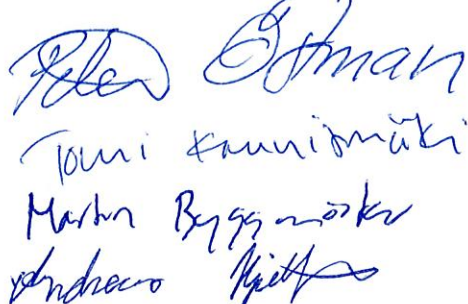 Peter Östman
Tomi Kaunismäki
Martin Byggmästar
Andreas